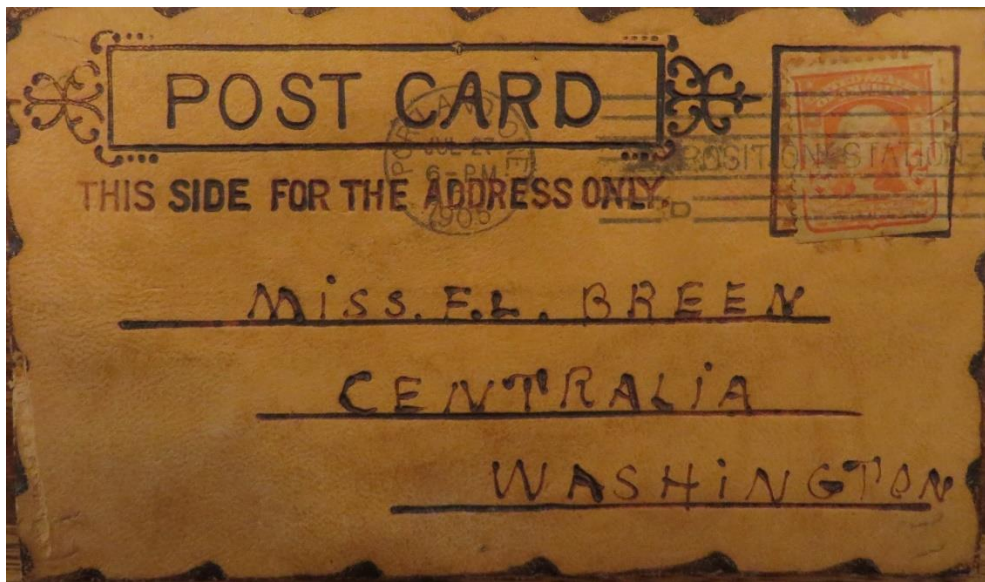 POST CARD
PORTLAND, ORE.
JUL 27
6-PM
1905
EXPOSITION STATION
THIS SIDE FOR THE ADDRESS ONLY.
MiSS. F.L. BREEN
CENTRALiA
WASHiNGTON